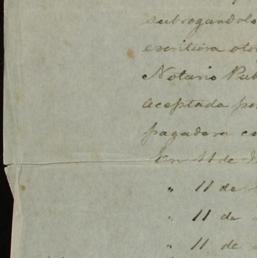 subrogandolo
escritura oto
Notario Pub
aceptada po
pagadera co
En 11 de
" 11 de
" 11 de
" 11 de